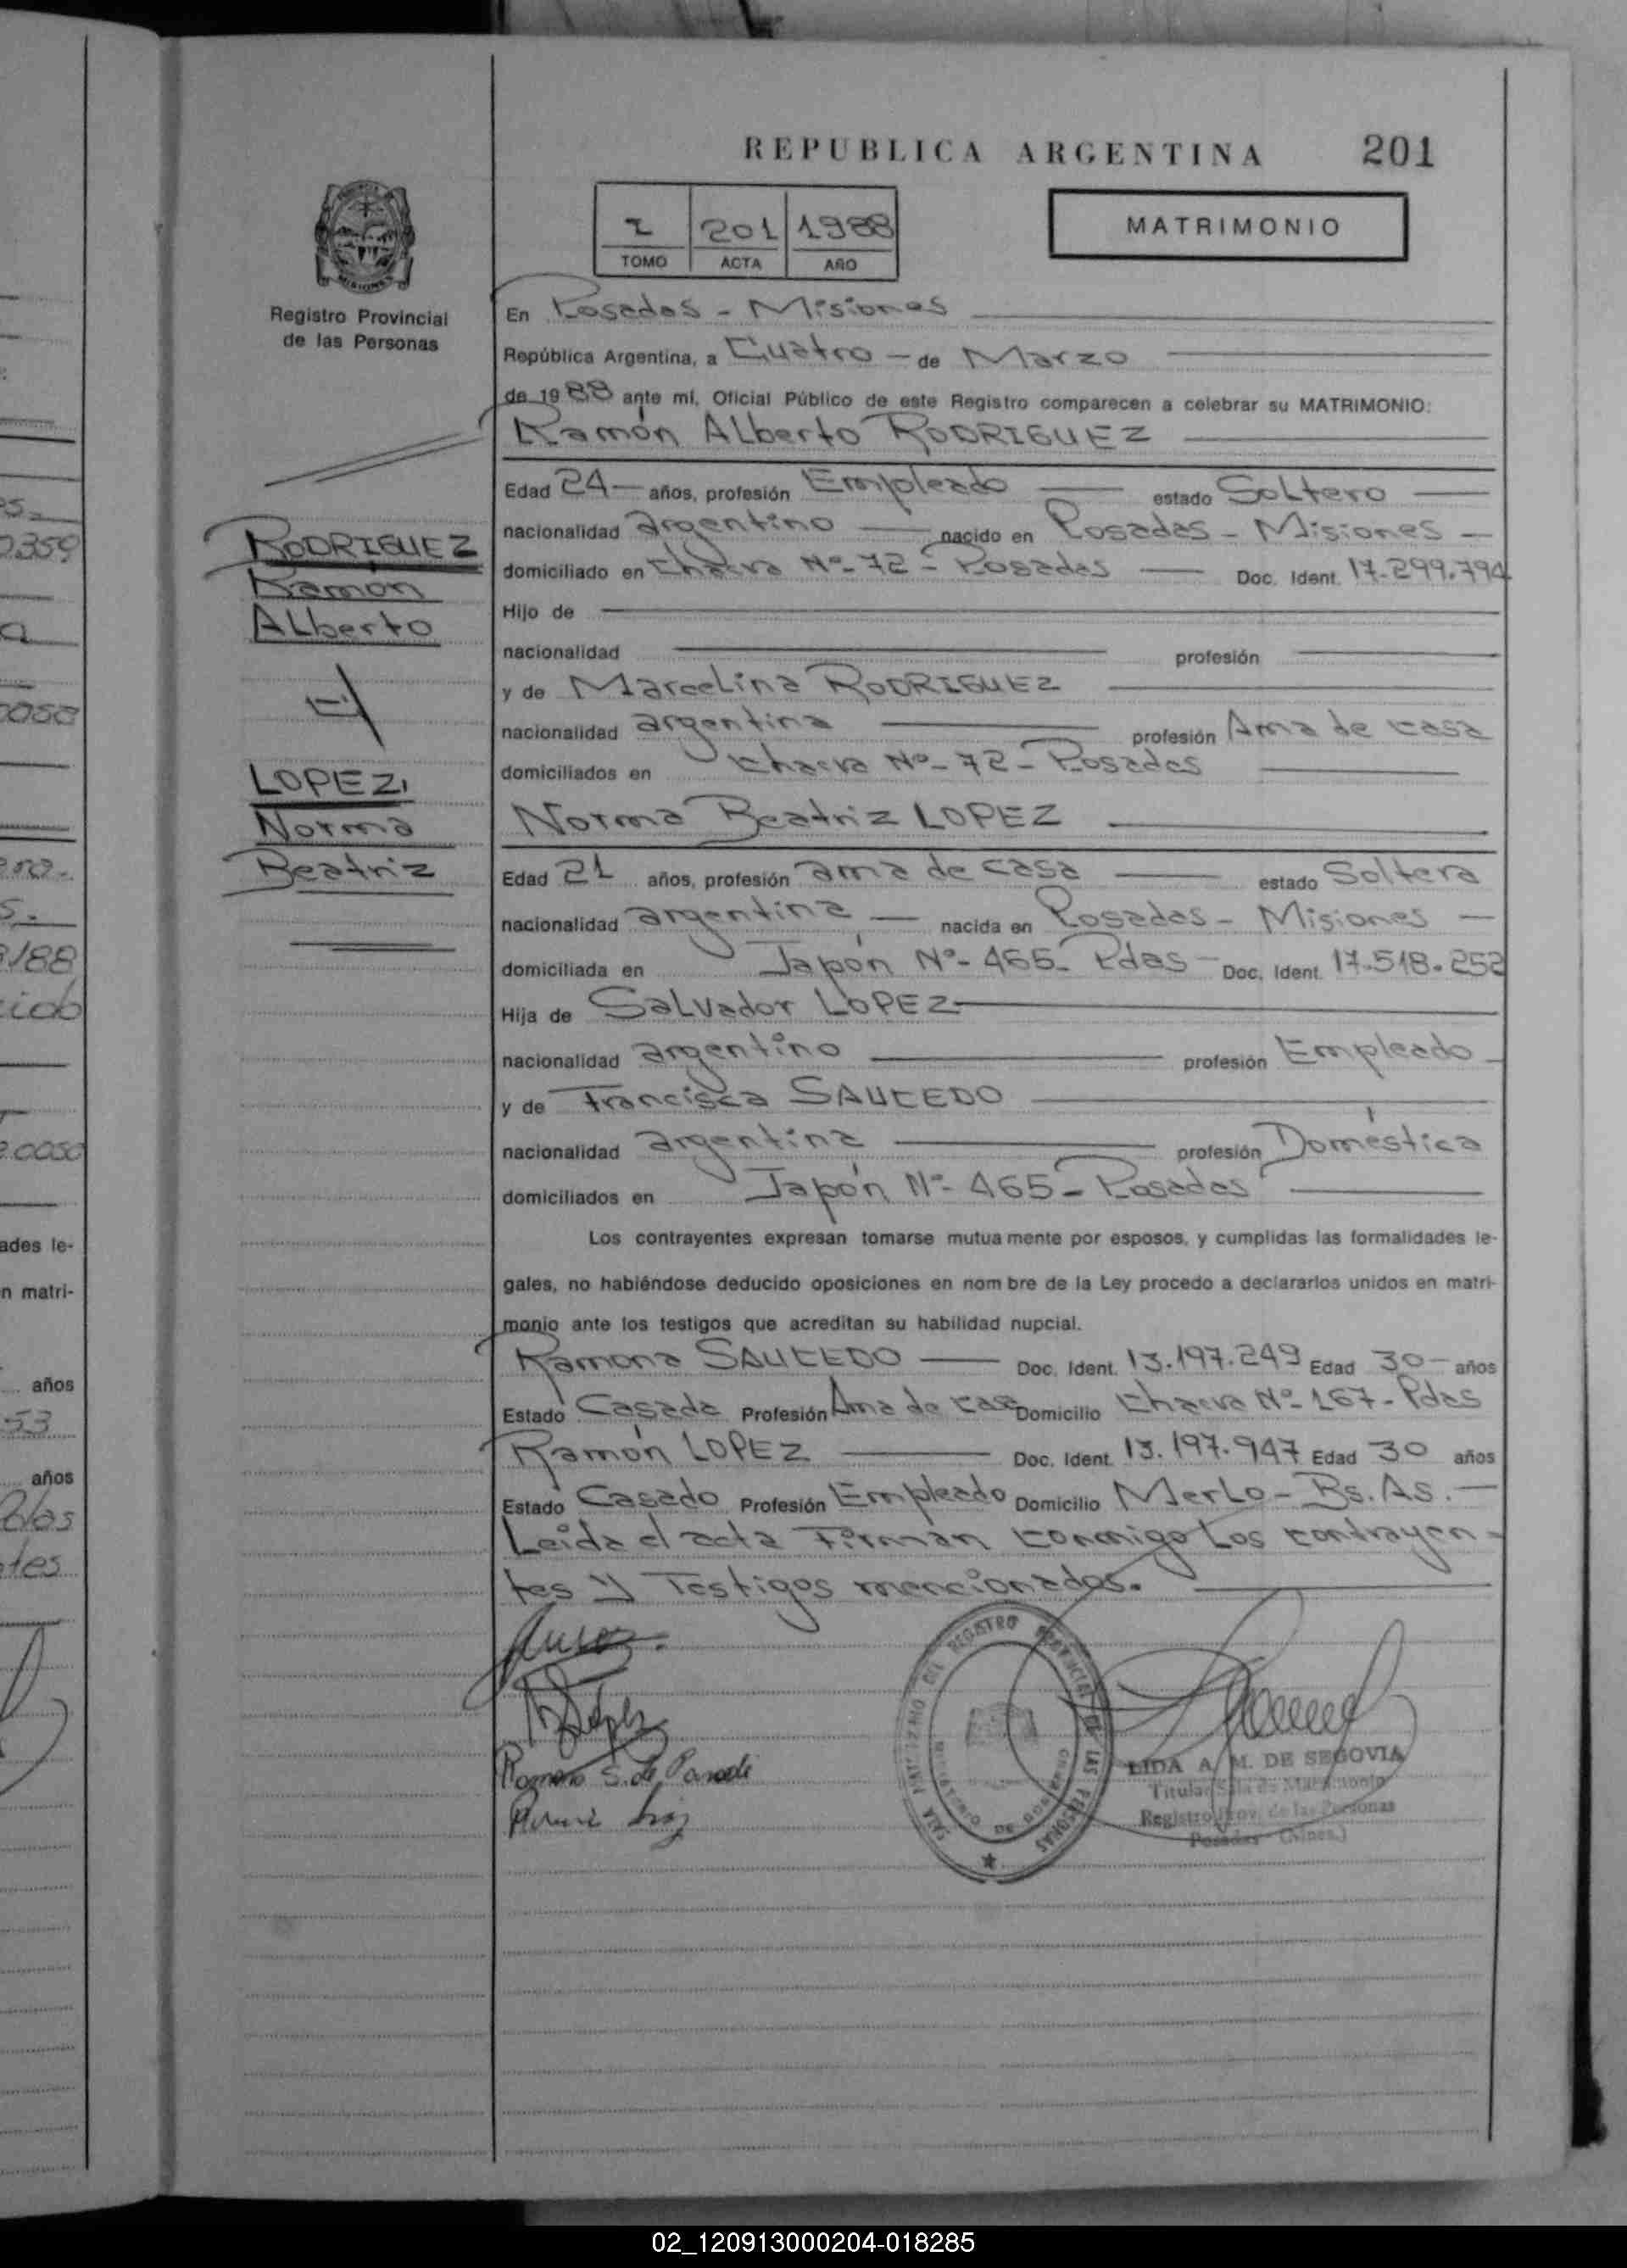 REPUBLICA ARGENTINA 201
I 201 1988
TOMO ACTA AÑO
MATRIMONIO
MISIONES
Registro Provincial
de las Personas
En Posadas - Misiones
República Argentina, a Cuatro - de Marzo
de 1988 ante mí, Oficial Público de este Registro comparecen a celebrar su MATRIMONIO:
Ramón Alberto RODRIGUEZ
Edad 24 años, profesión Empleado estado Soltero
nacionalidad argentino nacido en Posadas - Misiones
domiciliado en Chacra Nº- 72 - Posadas Doc. Ident. 17.299.794
Hijo de
nacionalidad profesión
y de Marcelina RODRIGUEZ
nacionalidad argentina profesión Ama de casa
domiciliados en Chacra Nº- 72 - Posadas
Norma Beatriz LOPEZ
Edad 21 años, profesión ama de casa estado Soltera
nacionalidad argentina nacida en Posadas - Misiones
domiciliada en Japón Nº- 465 - Pdas - Doc. Ident. 17.518.252
Hija de Salvador LOPEZ
nacionalidad argentino profesión Empleado
y de Francisca SAUCEDO
nacionalidad argentina profesión Doméstica
domiciliados en Japón Nº- 465 - Posadas
Los contrayentes expresan tomarse mutua mente por esposos, y cumplidas las formalidades le-
gales, no habiéndose deducido oposiciones en nom bre de la Ley procedo a declararlos unidos en matri-
monio ante los testigos que acreditan su habilidad nupcial.
Ramona SAUCEDO Doc. Ident. 13.197.249 Edad 30 - años
Estado Casada Profesión Ama de casa Domicilio Chacra Nº 167 - Pdas
Ramón LOPEZ Doc. Ident. 13.197.947 Edad 30 años
Estado Casado Profesión Empleado Domicilio Merlo - Bs. As.
Leída el acta Firman conmigo los contrayen-
tes y Testigos mencionados.
RODRIGUEZ
Ramón
Alberto
LOPEZ,
Norma
Beatriz
Ramona S. de
REGISTRO PROVINCIAL DE LAS PERSONAS
MINISTERIO DE GOBIERNO
LIDA A. M. DE SEGOVIA
Titular Sala de Matrimonio
Registro Prov. de las Personas
Posadas (Mnes.)
0359
a
0050
188
0050
ades le-
n matri-
años
53
años
tes
02_120913000204-018285